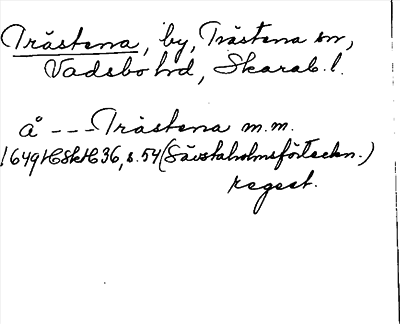 Trästena, by, Trästena sn,
Vadsbo hd, Skarab. l.
å --- Trästena m.m.
1649 HSkH 36, s. 54 (Sävstaholmsförteckn.)
regest.